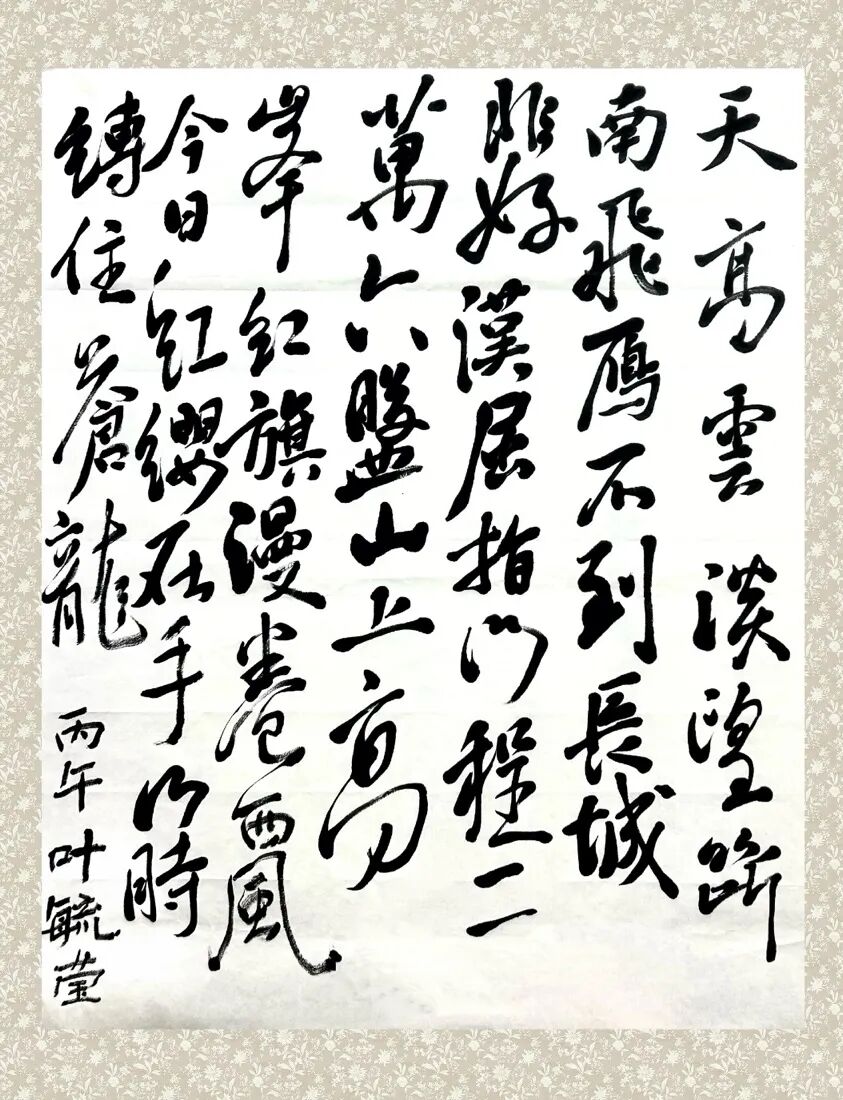 天高雲淡望斷
南飛雁不到長城
非好漢屈指行程二
萬六盤山上高
峯紅旗漫卷西風
今日紅纓在手何時
縛住蒼龍 丙午叶毓莹